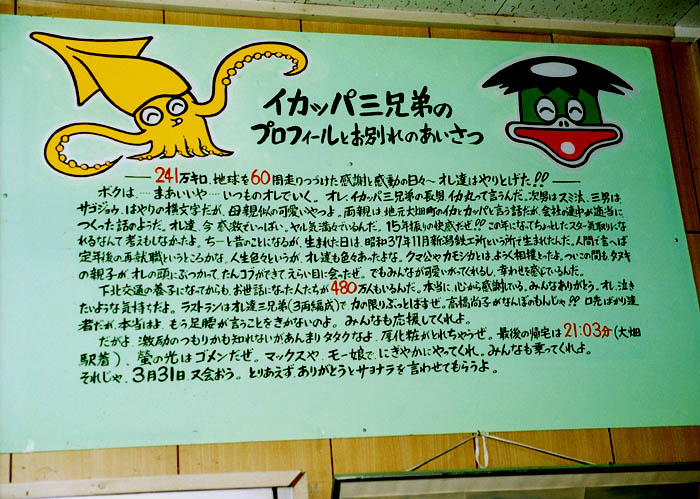 イカッパ三兄弟の
プロフィールとお別れのあいさつ
── 241万キロ、地球を60周走りつづけた感謝と感動の日々〜オレ達はやりとげた!! ──
ボクは‥‥まあいいや‥‥いつものオレでいく。オレ、イカッパ三兄弟の長男、イカ丸って言うんだ。次男はスミ汰、三男は、
サゴジョウ、はやりの横文字だが、母親似の可愛いやつよ。両親は、地元大畑町のイカとカッパと言う話だが、会社の連中が適当に
つくった話のようだ。オレ達、今、感激でいっぱい、ヤル気満々でいるんだ。15年振りの快感だぜ!!この年になってちょっとしたスター気取りにな
れるなんて考えもしなかったよ。ちーと昔のことになるが、生まれた日は、昭和37年11月新潟鉄工所という所で生まれたんだ。人間で言へば
定年後の再就職というところかな、人生色々というが、オレ達も色々あったよな。クマ公やカモシカとは、よく相撲とったよ。ついこの間もタヌキ
の親子が、オレの頭にぶつかって、たんコブができてえらい目に会ったぜ。でもみんなが可愛いがってくれるし、幸わせを感じているんだ。
下北交通の養子になってからも、お世話になった人たちが480万人もいるんだ。本当に、心から感謝している。みんなありがとう。オレ泣き
たいような気持ちだよ。ラストランはオレ達三兄弟(3両編成)で力の限りぶっとばすぜ。高橋尚子がなんぼのもんじゃ!!口先ばかり達
者だが、本当はよ、もう足腰が言うことをきかないのよ。みんなも応援してくれよ。
だがよ、激励のつもりかも知れないがあんまりタタクなよ、厚化粧がとれちゃうぜ。最後の帰宅は21:03分(大畑
駅着)、螢の光はゴメンだぜ。マックスや、モー娘で、にぎやかにやってくれ。みんなも乗ってくれよ。
それじゃ、3月31日、又会おう。とりあえず、ありがとうとサヨナラを言わせてもらうよ。